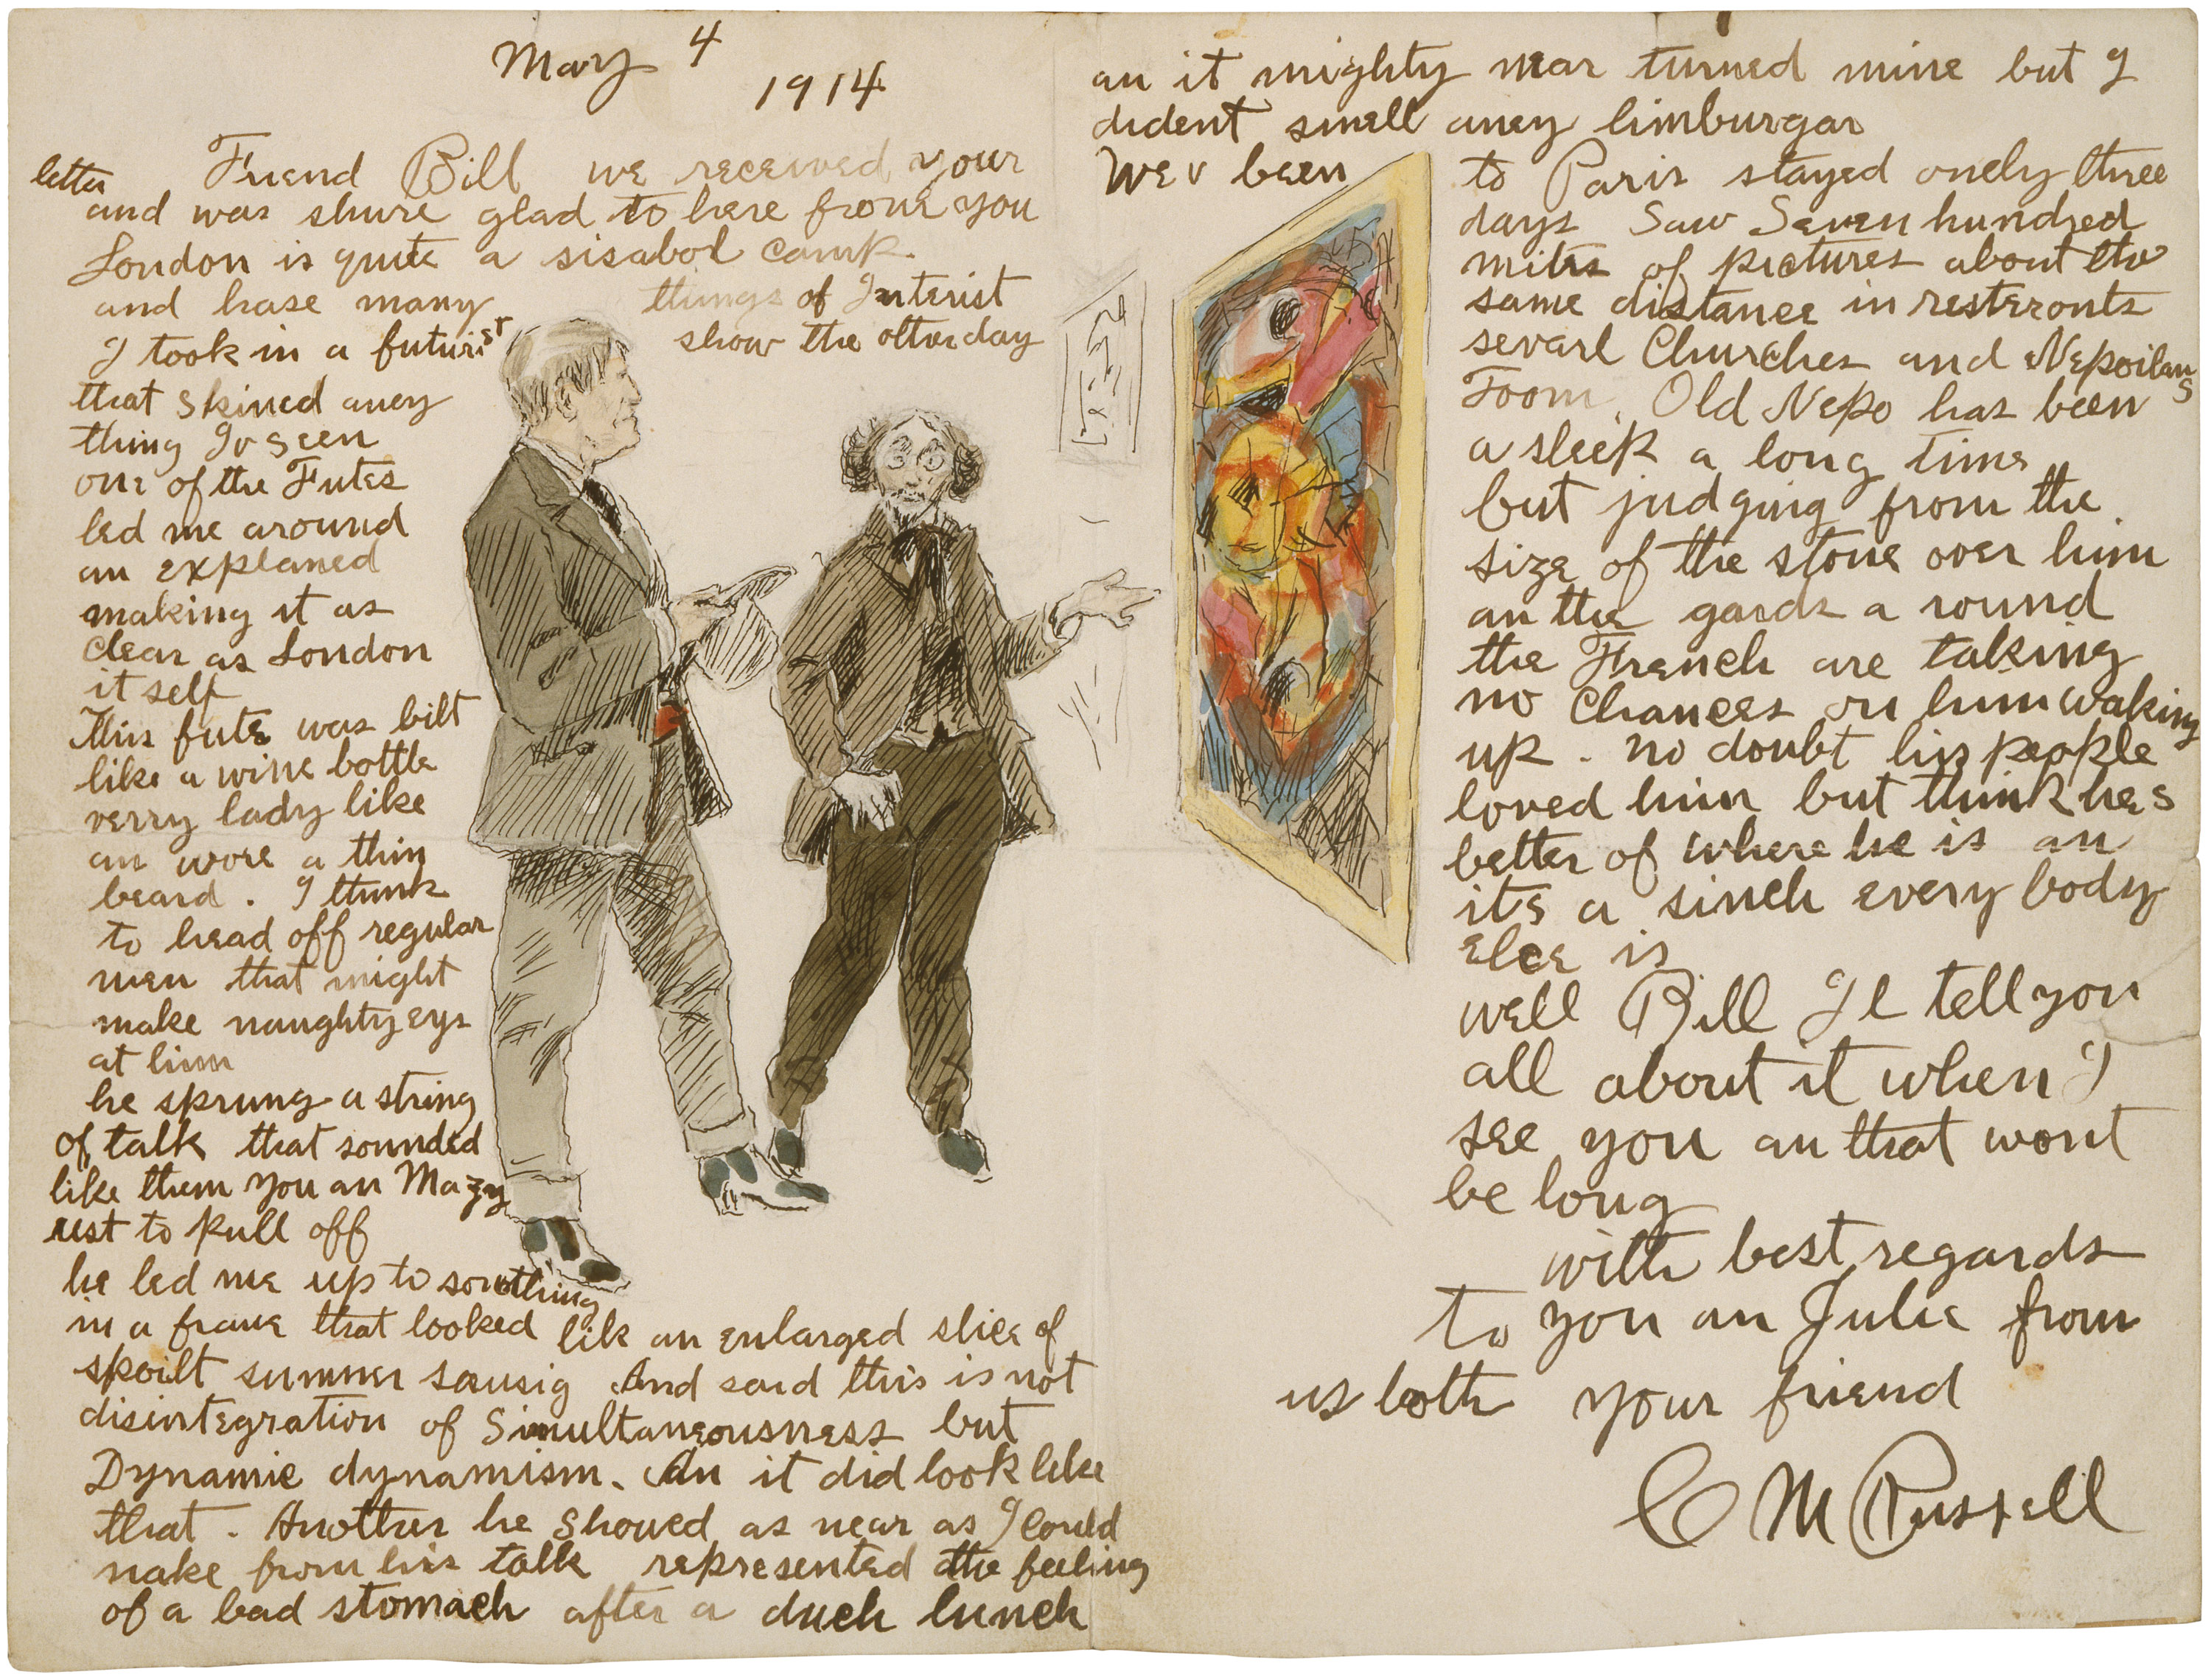 May 4
1914
Friend Bill we received your
letter
and was shure glad to here from you
London is quite a sisabol camp.
and hase many things of Interist
I took in a futurist show the other day
that skined aney
thing Iv seen
one of the Futes
led me around
an explaned
making it as
clear as London
it self
This fute was bilt
like a wine bottle
verry lady like
an wore a thin
beard. I think
to head off regular
men that might
make naughty eys
at him
he sprung a string
of talk that sounded
like them you an Mazy
ust to pull off
he led me up to something
in a frame that looked lik an enlarged slice of
spoilt summer sausig And said this is not
disintegration of Simultaneousness but
Dynamic dynamism. An it did look like
that. Another he showed as near as I could
make from his talk represented the feeling
of a bad stomach after a duch lunch
an it mighty near turned mine but I
dident smell aney limburgar
Wev been to Paris stayed onely three
days Saw Seven hundred
miles of pictures about the
same distance in resteronts
sevarl Churches and Nepoilans
Toom. Old Nepo has been
a sleep a long time
but judging from the
size of the stone over him
an the gards a round
the French are taking
no chances on him waking
up. no doubt his people
loved him but think hes
better of where he is an
its a sinch every body
elce is
well Bill Il tell you
all about it when I
see you an that wont
be long
with best regards
to you an Julie from
us both your friend
C M Russell